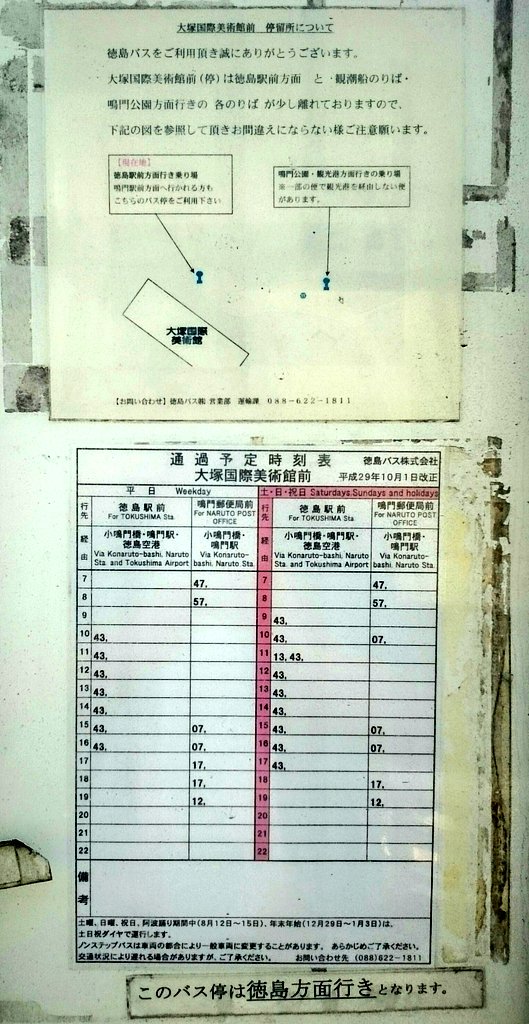 大塚国際美術館前　停留所について
徳島バスをご利用頂き誠にありがとうございます。
大塚国際美術館前(停)は徳島駅前方面　と　観潮船のりば・
鳴門公園方面行きの　各のりば　が少し離れておりますので、
下記の図を参照して頂きお間違えにならない様ご注意願います。
【現在地】
徳島駅前方面行き乗り場
鳴門駅前方面へ行かれる方も
こちらのバス停をご利用下さい
鳴門公園・観光港方面行きの乗り場
※一部の便で観光港を経由しない便
があります。
大塚国際
美術館
【お問い合わせ】徳島バス㈱ 営業部　運輸課　088-622-1811
通過予定時刻表　徳島バス株式会社
大塚国際美術館前　平成29年10月1日改正
平　日　Weekday　土・日・祝日 Saturdays.Sundays and holidays
行先　徳島駅前　鳴門郵便局前　行先　徳島駅前　鳴門郵便局前
For TOKUSHIMA Sta.　For NARUTO POST OFFICE　For TOKUSHIMA Sta.　For NARUTO POST OFFICE
経由　小鳴門橋・鳴門駅・徳島空港　小鳴門橋・鳴門駅　経由　小鳴門橋・鳴門駅・徳島空港　小鳴門橋・鳴門駅
Via Konaruto-bashi, Naruto Sta. and Tokushima Airport　Via Konaruto-bashi, Naruto Sta.　Via Konaruto-bashi, Naruto Sta. and Tokushima Airport　Via Konaruto-bashi, Naruto Sta.
7　47,　7　47,
8　57,　8　57,
9　9　43,
10　43,　10　43,　07,
11　43,　11　13, 43,
12　43,　12　43,
13　43,　13　43,
14　43,　14　43,
15　43,　07,　15　43,　07,
16　43,　07,　16　43,　07,
17　17,　17　43,
18　17,　18　17,
19　12,　19　12,
20　20
21　21
22　22
備考
土曜、日曜、祝日、阿波踊り期間中(8月12日～15日)、年末年始(12月29日～1月3日)は、
土日祝ダイヤで運行します。
ノンステップバスは車両の都合により一般車両に変更することがあります。　あらかじめご了承ください。
交通状況により遅れる場合がありますが、ご了承ください。　お問い合わせ先　(088)622-1811
このバス停は徳島方面行きとなります。